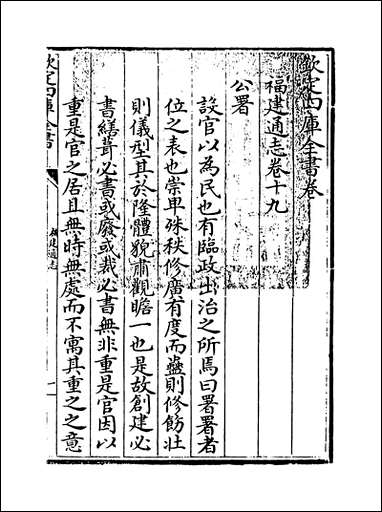 欽定四庫全書卷
福建通志卷十九
公署
設官以為民也有臨政出治之所焉曰署署者
位之表也崇卑殊秩修廣有度而蠱則修飭壯
則儀型其於隆體貌肅觀瞻一也是故創建必
書繕葺必書或廢或裁必書無非重是官因以
重是官之居且無時無處而不寓其重之之意
欽定四庫全書
福建通志